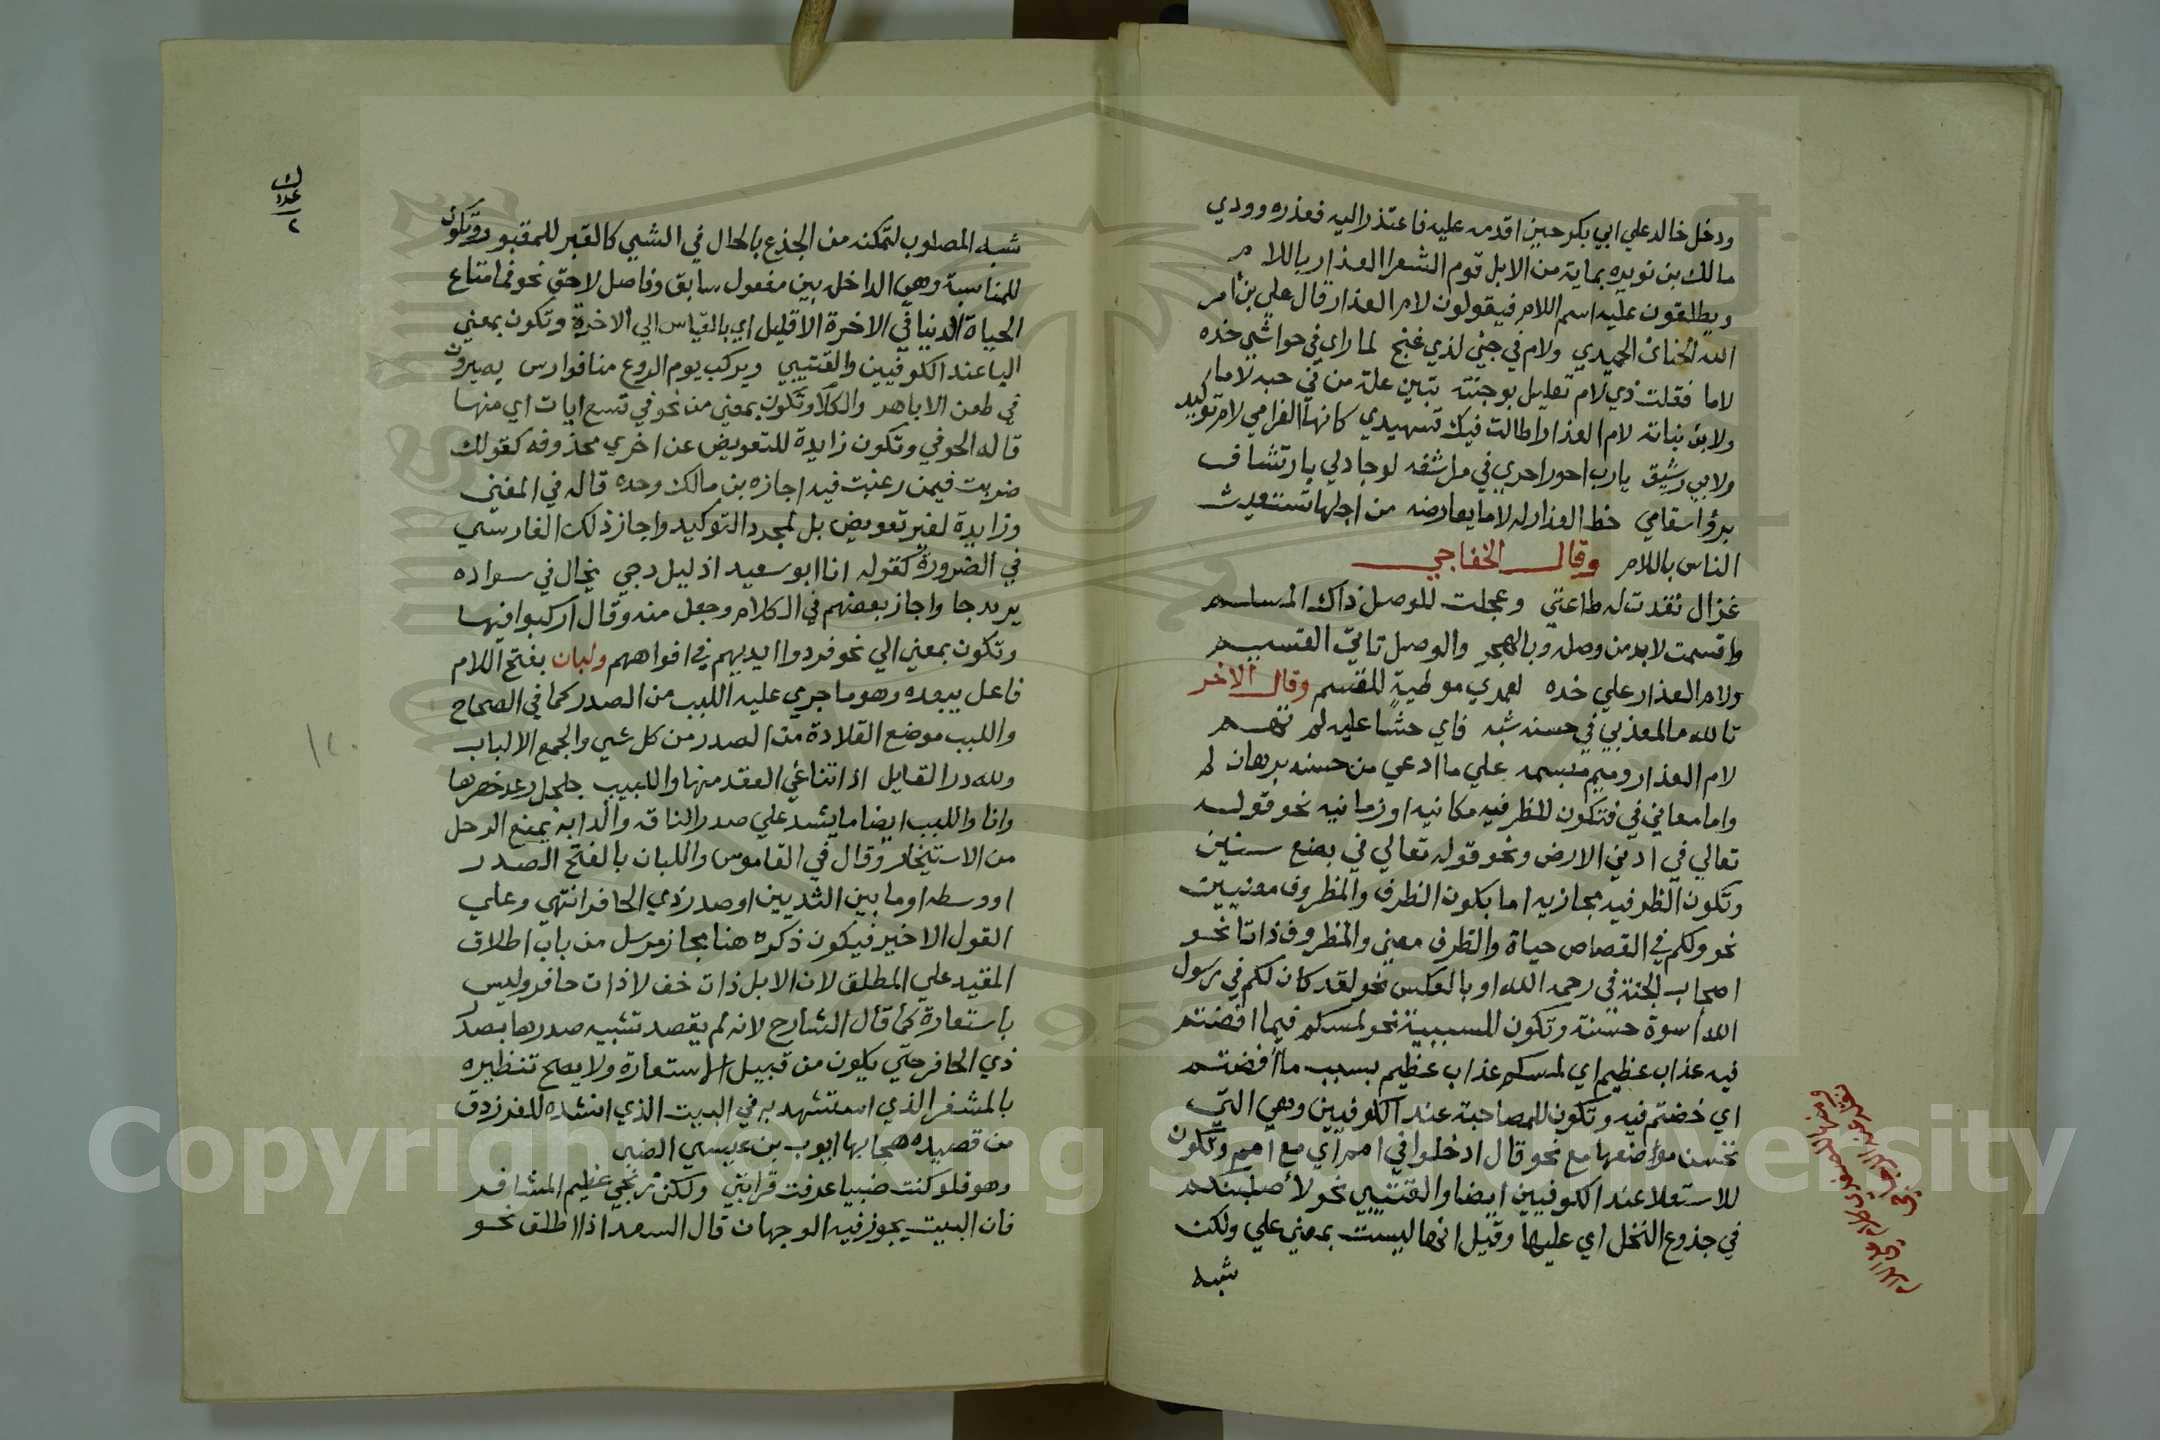 ودخل خالد علي ابي بكر حين اقدمه عليه فاعتذر اليه فعذره وودي
مالك بن نويره بماية من الابل قوم الشعرا العذار باللام
ويطلقون عليه اسم اللام فيقولون لام العذار قال علي بن أمر
الله الحنائ الحميدي ولام في جني لذي غنج لما راي في حواشي خده
لاما فقلت ذي لام تعليل بوجنته تبين علة من في حبه لاما
ولابن نباته لام العذار اطالت فيك تسهيدي كانها لغرامي لام توكيد
ولابي رشيق يارب احور احوي في مراشفه لو جاد لي بارتشاف
برؤ اسقامي خط العذار له لاما يعارضه من اجلها تستغيث
الناس باللام وقال الخفاجي
غزال نقدت له طاعتي وعجلت للوصل ذاك المسلم
واقسمت لابد من وصله وبالهجر والوصل تاتي القسيم
ولام العذار علي خده لعمدي موطية للقسم وقال الاخر
تالله ما لمعذبي في حسنه شبه فاي حشا عليه لم تهم
لام العذار وميم مبسمه علي ما ادعي من حسنه برهان لم
واما معاني في فتكون للظرفيه مكانيه او زمانيه نحو قوله
تعالي في ادني الارض ونحو قوله تعالي في بضع سنين
وتكون الظرفيه مجازيه اما بكون الظرف والمظروف معنيين
نحو ولكم في القصاص حياة والظرف معني والمظروف ذاتا نحو
اصحاب الجنة في رحمه الله او بالعكس نحو لقد كان لكم في رسول
الله أسوة حسنة وتكون للسببية نحو لمسكم فيما افضتم
فيه عذاب عظيم اي لمسكم عذاب عظيم بسبب ما أفضتم
اي خضتم فيه وتكون للمصاحبة عند الكوفيين وهي التي
تحسن موضعها مع نحو قال ادخلوا في امم أي مع امم وتكون
للاستعلا عند الكوفيين ايضا والقتيبي نحو لأصلبنكم
في جذوع النخل اي عليها وقيل انها ليست بمعني علي ولكن
شبه
شبه المصلوب لتمكنه من الجذع بالحال في الشيي كالقبر للمقبور وتكون
للمناسبة وهي الداخله بين مفعول سابق وفاصل لاحق نحو فما متاع
الحياة الدنيا في الاخرة الا قليل اي بالقياس الي الاخرة وتكون بمعني
البا عند الكوفيين والقتيبي ويركب يوم الروع منا فوارس يصيرون
في طعن الاباهر والكلا وتكون بمعني من نحو في تسع ايات اي منها
قاله الحوفي وتكون زايدة للتعويض عن اخري محذوفه كقولك
ضربت فيمن رغبت فيه اجازه بن مالك وحده قال في المغني
وزايدة لغير تعويض بل لمجرد التوكيد واجاز ذلك الفارسي
في الضرورة كقوله انا ابو سعيد اذ ليل دجي يخال في سواده
يرندجا واجاز بعضهم في الكلام وجعل منه وقال اركبوا فيها
وتكون بمعني الي نحو فردوا ايديهم في افواههم ولبان بفتح اللام
فاعل يبعده وهو ما جري عليه اللبب من الصدر كما في الصحاح
واللبب موضع القلادة من الصدر من كل شي والجمع الالباب
ولله در القايل اذا تناغي العقد منها واللبيب جلجل رعد خصرها
وانا واللبب ايضا ما يشد علي صدر الناقه والدابه يمنع الرحل
من الاستيخار وقال في القاموس واللبان بالفتح الصدر
او وسطه او ما بين الثديين او صدر ذي الحافر انتهي وعلي
القول الاخير فيكون ذكره هنا مجاز مرسل من باب اطلاق
المقيد علي المطلق لان الابل ذات خف لا ذات حافر وليس
باستعارة كما قال الشارح لانه لم يقصد تشبيه صدرها بصدر
ذي الحافر حتي يكون من قبيل الاستعارة ولا يصح تنظيره
بالمشفر الذي استشهد به في البيت الذي انشده للفرزدق
من قصيده هجا بها ايوب بن عيسي الضبي
وهو فلو كنت ضبيا عرفت قرابتي ولكن زنجي عظيم المشافر
فان البيت يجوز فيه الوجهان قال السعد اذا اطلق نحو
Copyright © King Saud University
1957